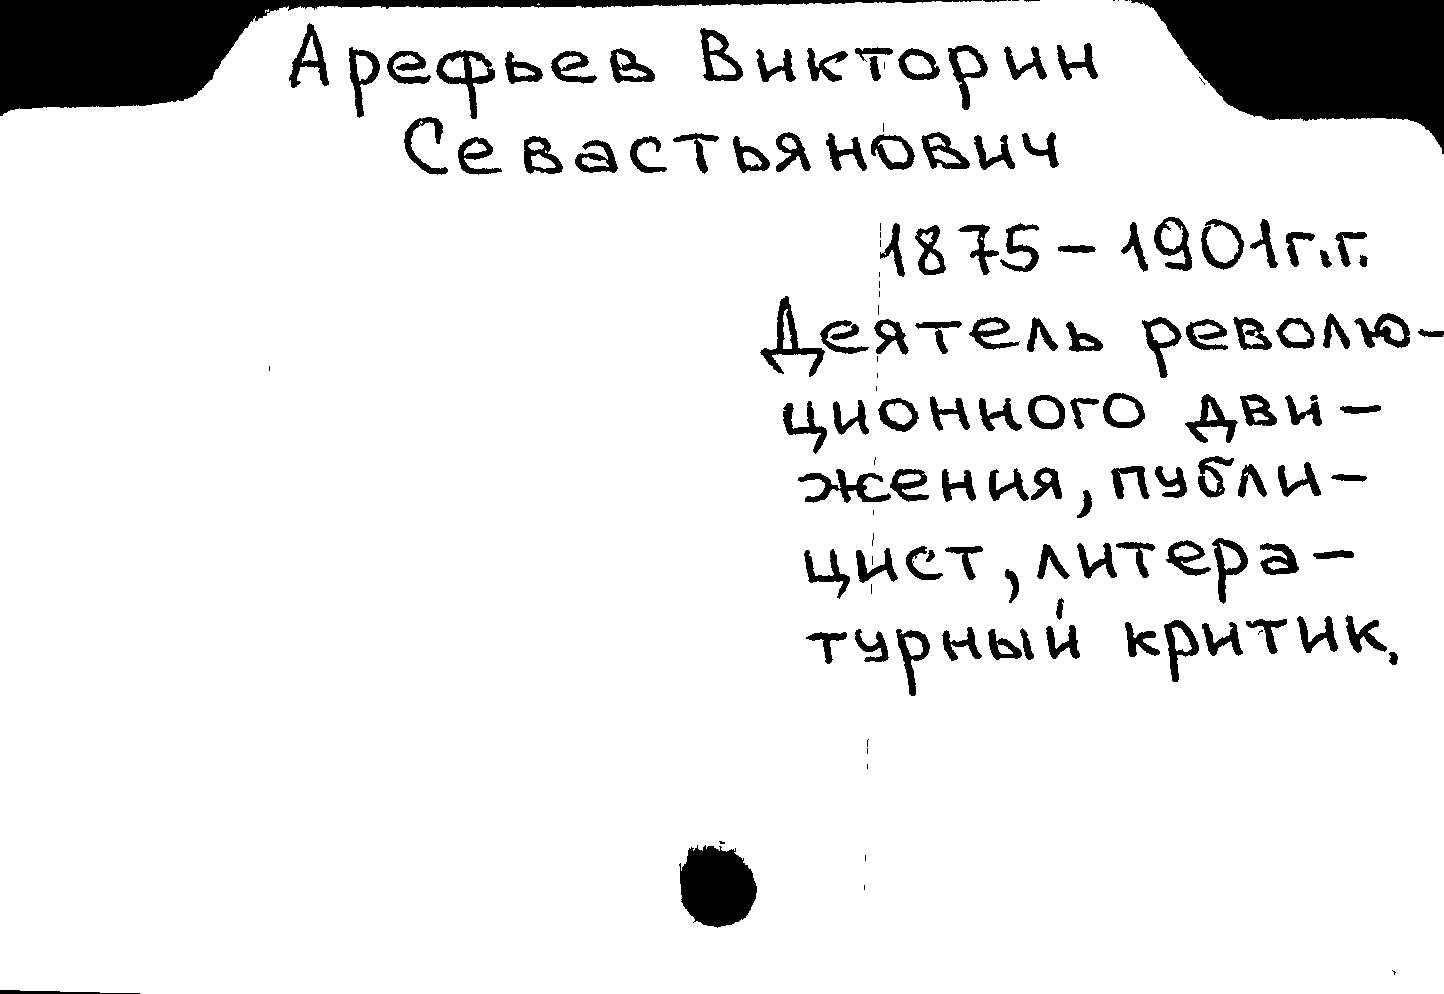 Арефьев Викторин
Севастьянович
1875 – 1901г.г.
Деятель револю-
ционного дви-
жения, публи-
цист, литера-
турный критик.